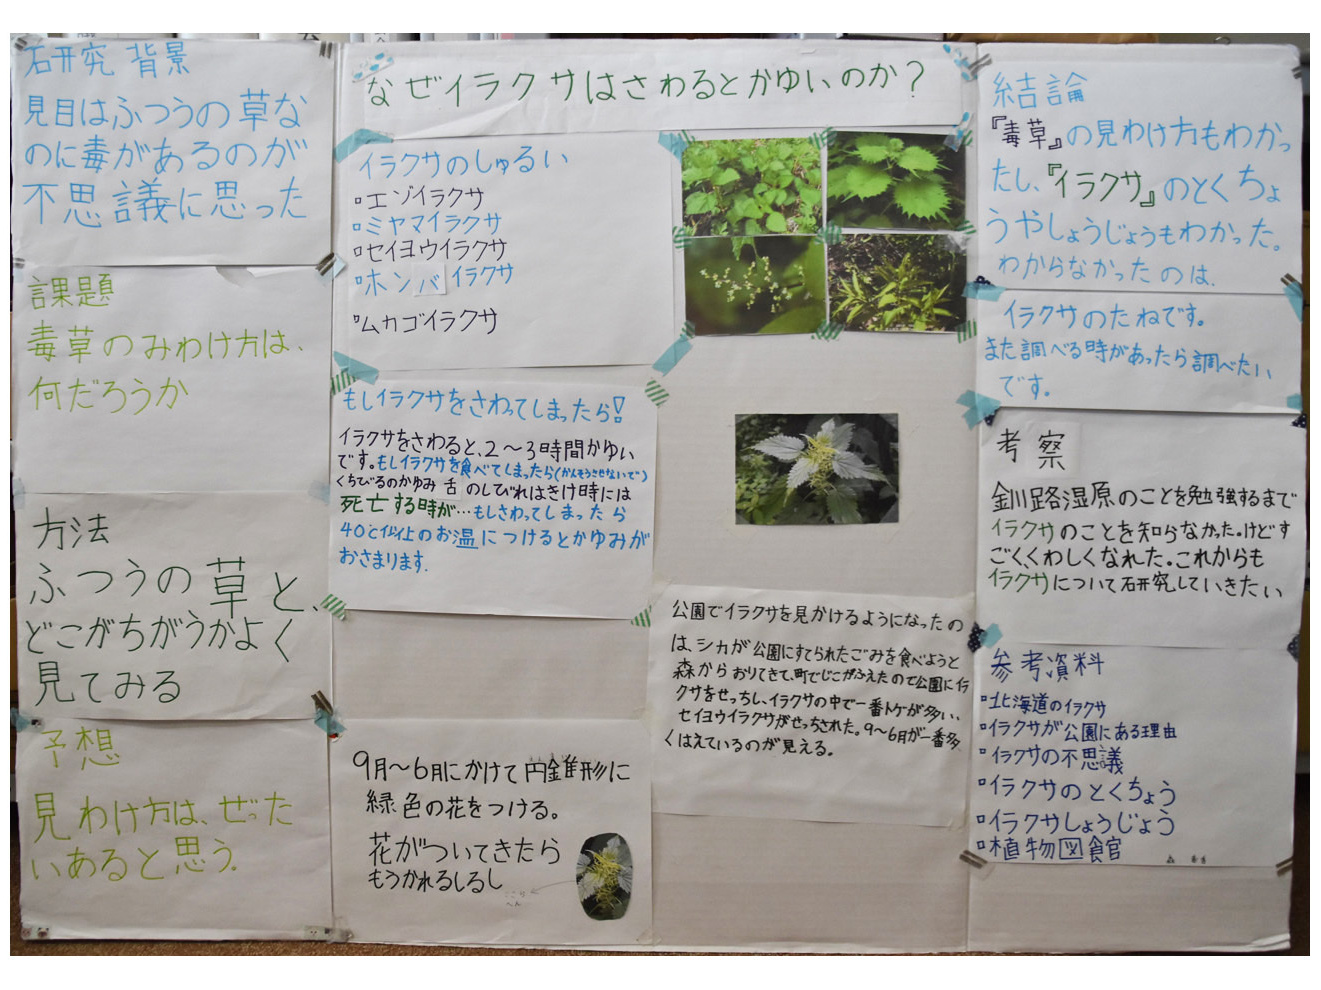 研究 背景
見目はふつうの草な
のに毒があるのが
不思議に思った
課題
毒草のみわけ方は、
何だろうか
方法
ふつうの草と、
どこがちがうかよく
見てみる
予想
見わけ方は、ぜった
いあると思う。
なぜイラクサはさわるとかゆいのか?
イラクサのしゅるい
▫エゾイラクサ
▫ミヤマイラクサ
▫セイヨウイラクサ
▫ホソバイラクサ
▫ムカゴイラクサ
もしイラクサをさわってしまったら!
イラクサをさわると、2〜3時間かゆい
です。もしイラクサを食べてしまったら(かんそうさせないで)
くちびるのかゆみ 舌 のしびれはきけ時には
死亡する時が…もしさわってしまったら
40℃以上のお温につけるとかゆみが
おさまります.
9月〜6月にかけて円錐形に
緑色の花をつける。
花がついてきたら
もうかれるしるし
公園でイラクサを見かけるようになったの
は、シカが公園にすてられたごみを食べようと
森からおりてきて、町でじこがふえたので公園にイラ
クサをせっちし、イラクサの中で一番トゲが多い、
セイヨウイラクサがせっちされた。9〜6月が一番多
くはえているのが見える。
結論
『毒草』の見わけ方もわかっ
たし、『イラクサ』のとくちょ
うやしょうじょうもわかった。
わからなかったのは、
イラクサのたねです。
また調べる時があったら調べたい
です。
考察
釧路湿原のことを勉強するまで
イラクサのことを知らなかった。けどす
ごくくわしくなれた。これからも
イラクサについて研究していきたい
参考資料
▫北海道のイラクサ
▫イラクサが公園にある理由
▫イラクサの不思議
▫イラクサのとくちょう
▫イラクサしょうじょう
▫植物図食官